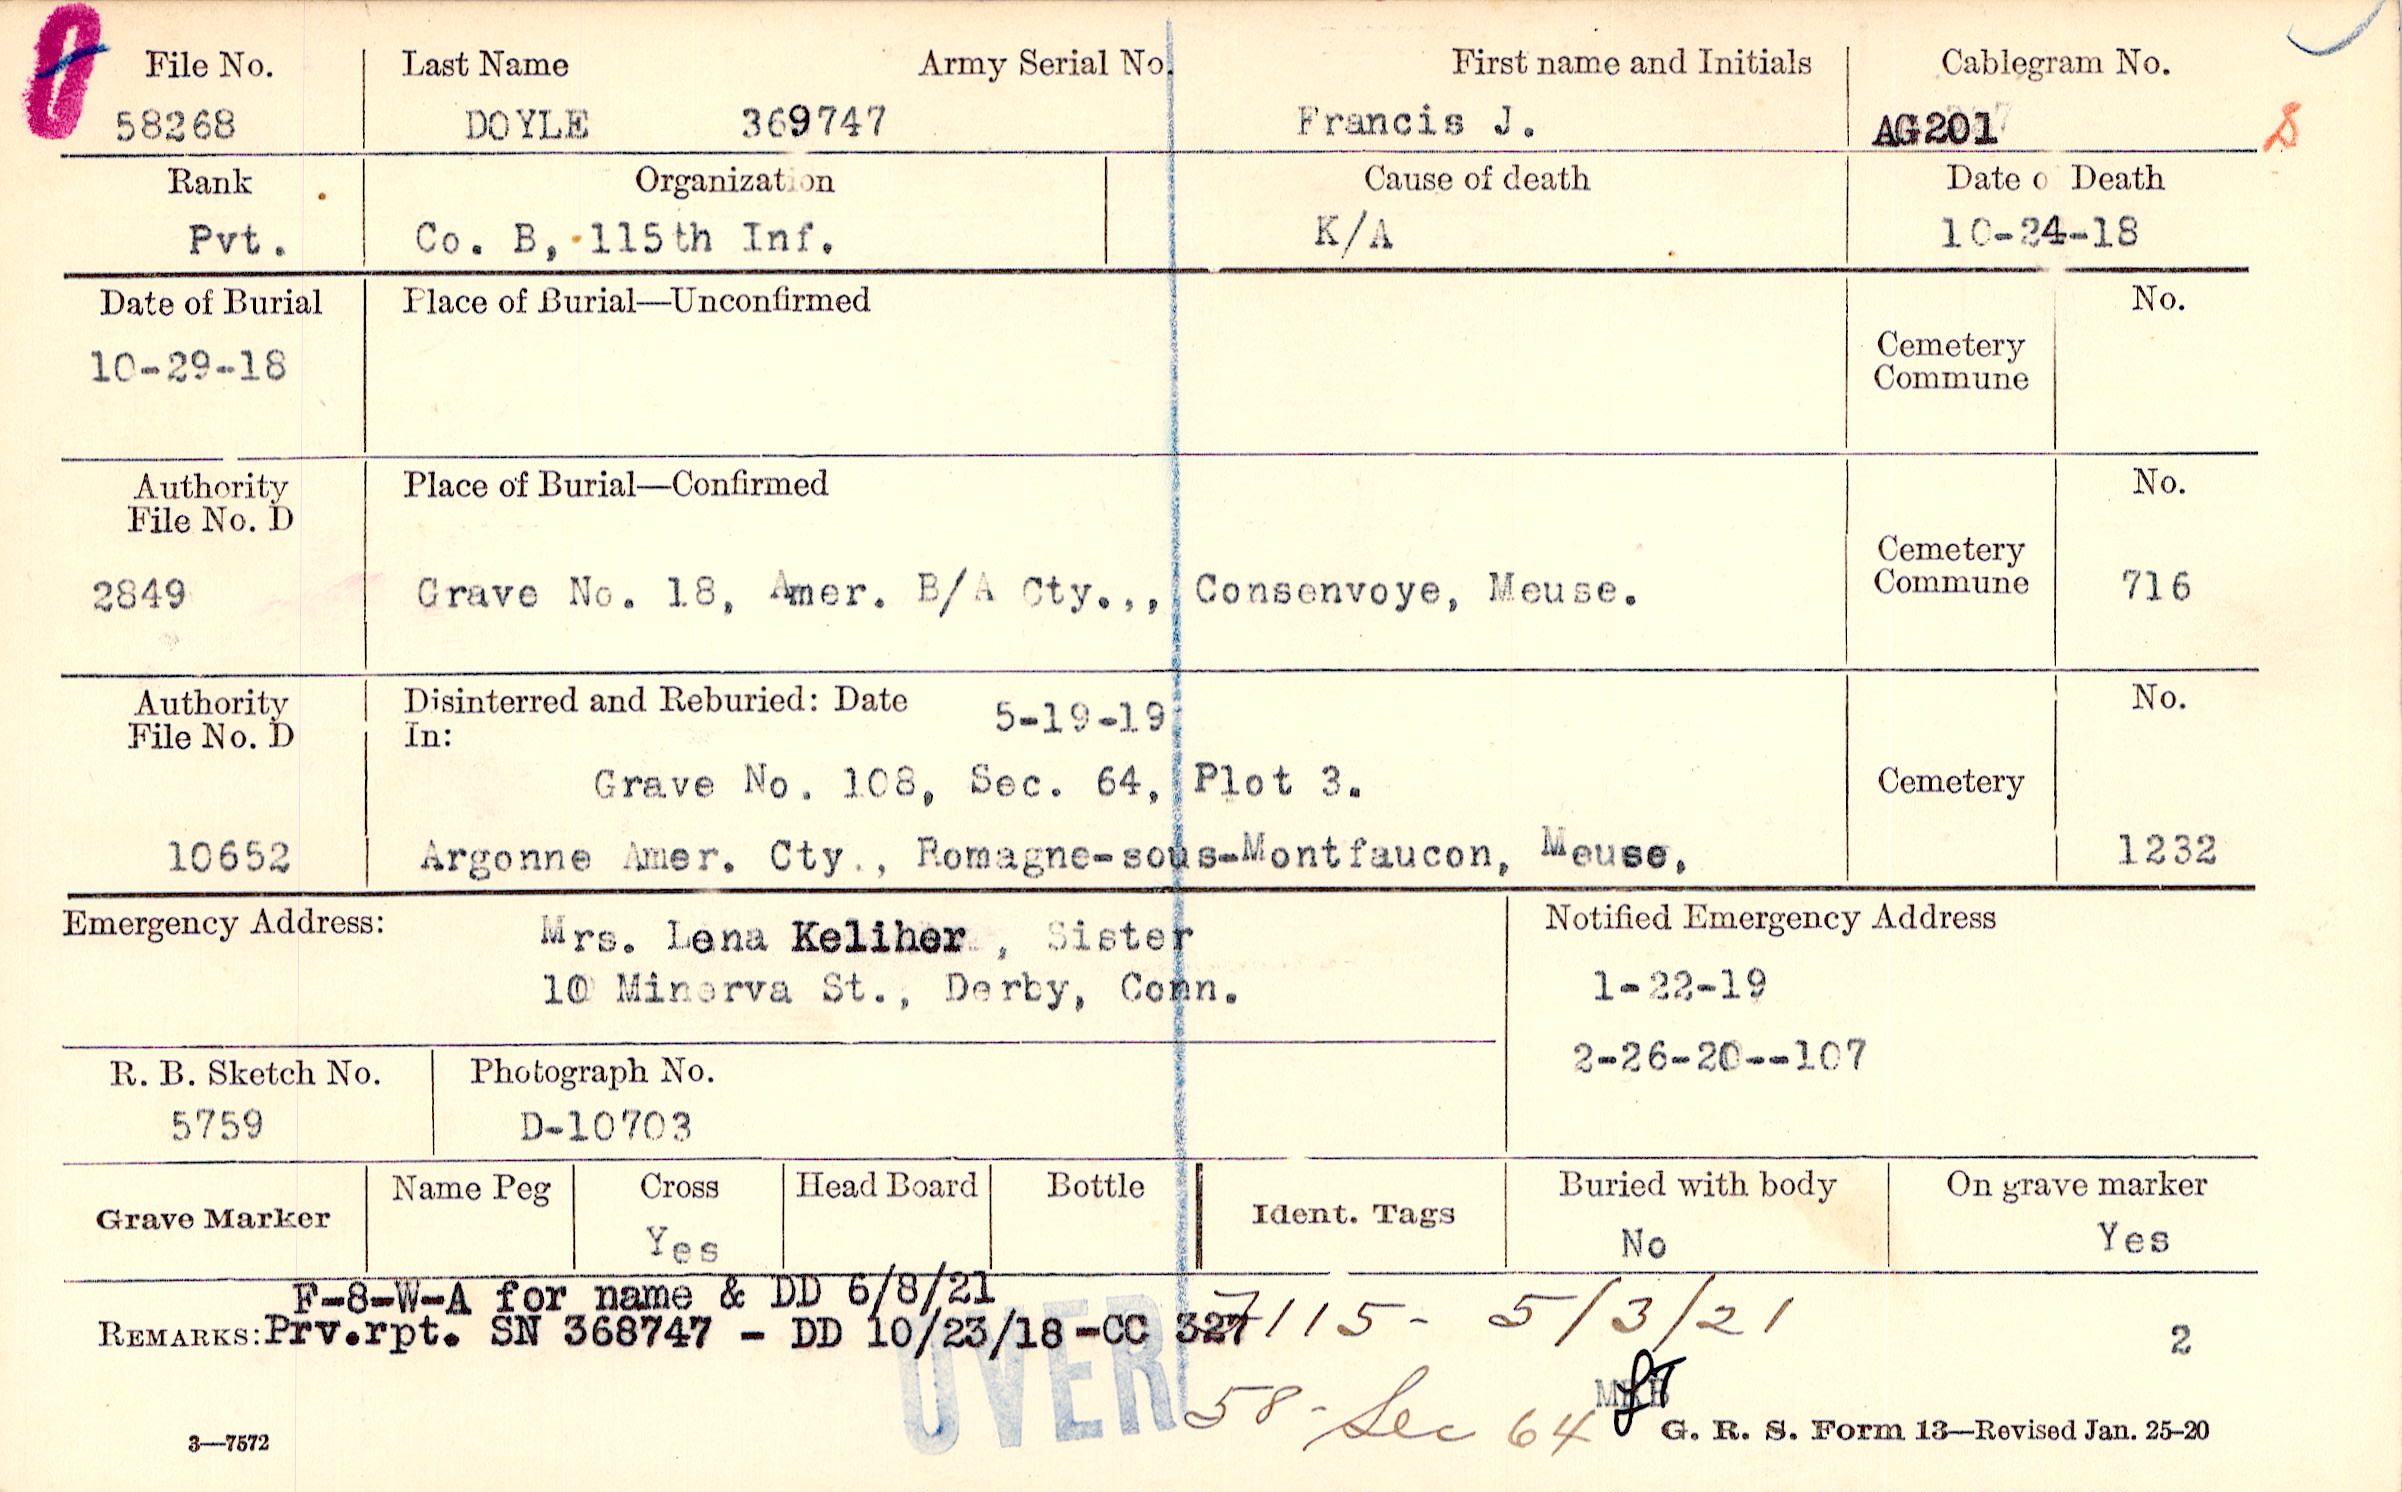 File No. Last Name Army Serial No. First name and Initials Cablegram No.
58268 DOYLE 369747 Francis J. AG201
Rank Organization Cause of death Date o Death
Pvt. Co. B, 115th Inf. K/A 10-24-18
Date of Burial Place of Burial—Unconfirmed No.
10-29-18 Cemetery
Commune
Authority Place of Burial—Confirmed No.
File No. D
Cemetery
2849 Grave No. 18, Amer. B/A Cty.,, Consenvoye, Meuse. Commune 716
Authority Disinterred and Reburied: Date 5-19-19 No.
File No. D In:
Grave No. 108, Sec. 64, Plot 3. Cemetery
10652 Argonne Amer. Cty., Romagne-sous-Montfaucon, Meuse, 1232
Emergency Address: Mrs. Lena Keliher, Sister Notified Emergency Address
10 Minerva St., Derby, Conn. 1-22-19
2-26-20--107
R. B. Sketch No. Photograph No.
5759 D-10703
Grave Marker Name Peg Cross Head Board Bottle Ident. Tags Buried with body On grave marker
Yes No Yes
F-8-W-A for name & DD 6/8/21
REMARKS: Prv.rpt. SN 368747 - DD 10/23/18-CC 327 7115- 5/3/21 2
OVER
58- Sec 64
3—7572 G. R. S. Form 13—Revised Jan. 25-20